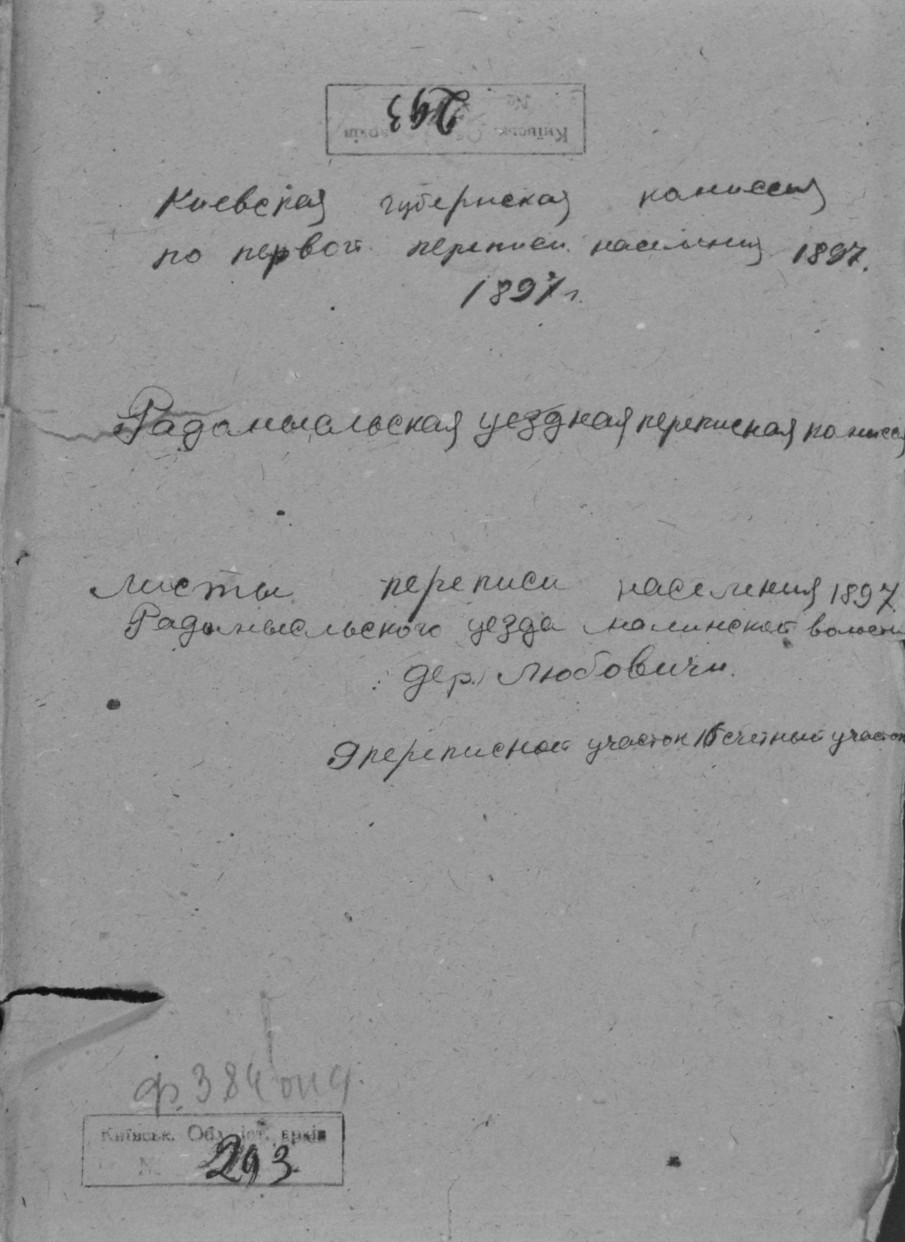 Київськ. Об архів
№ 293
Киевская губернская комиссия
по первой переписи населения 1897.
1897 г.
Радомысльская уездная переписная комисся
Листы переписи населения 1897
Радомысльского уезда малинской волости
дер. Любовичи.
9 переписной участок 15 счетный участок
ф. 384 оп 9.
Київськ. Обл. іст. архів
№ 293